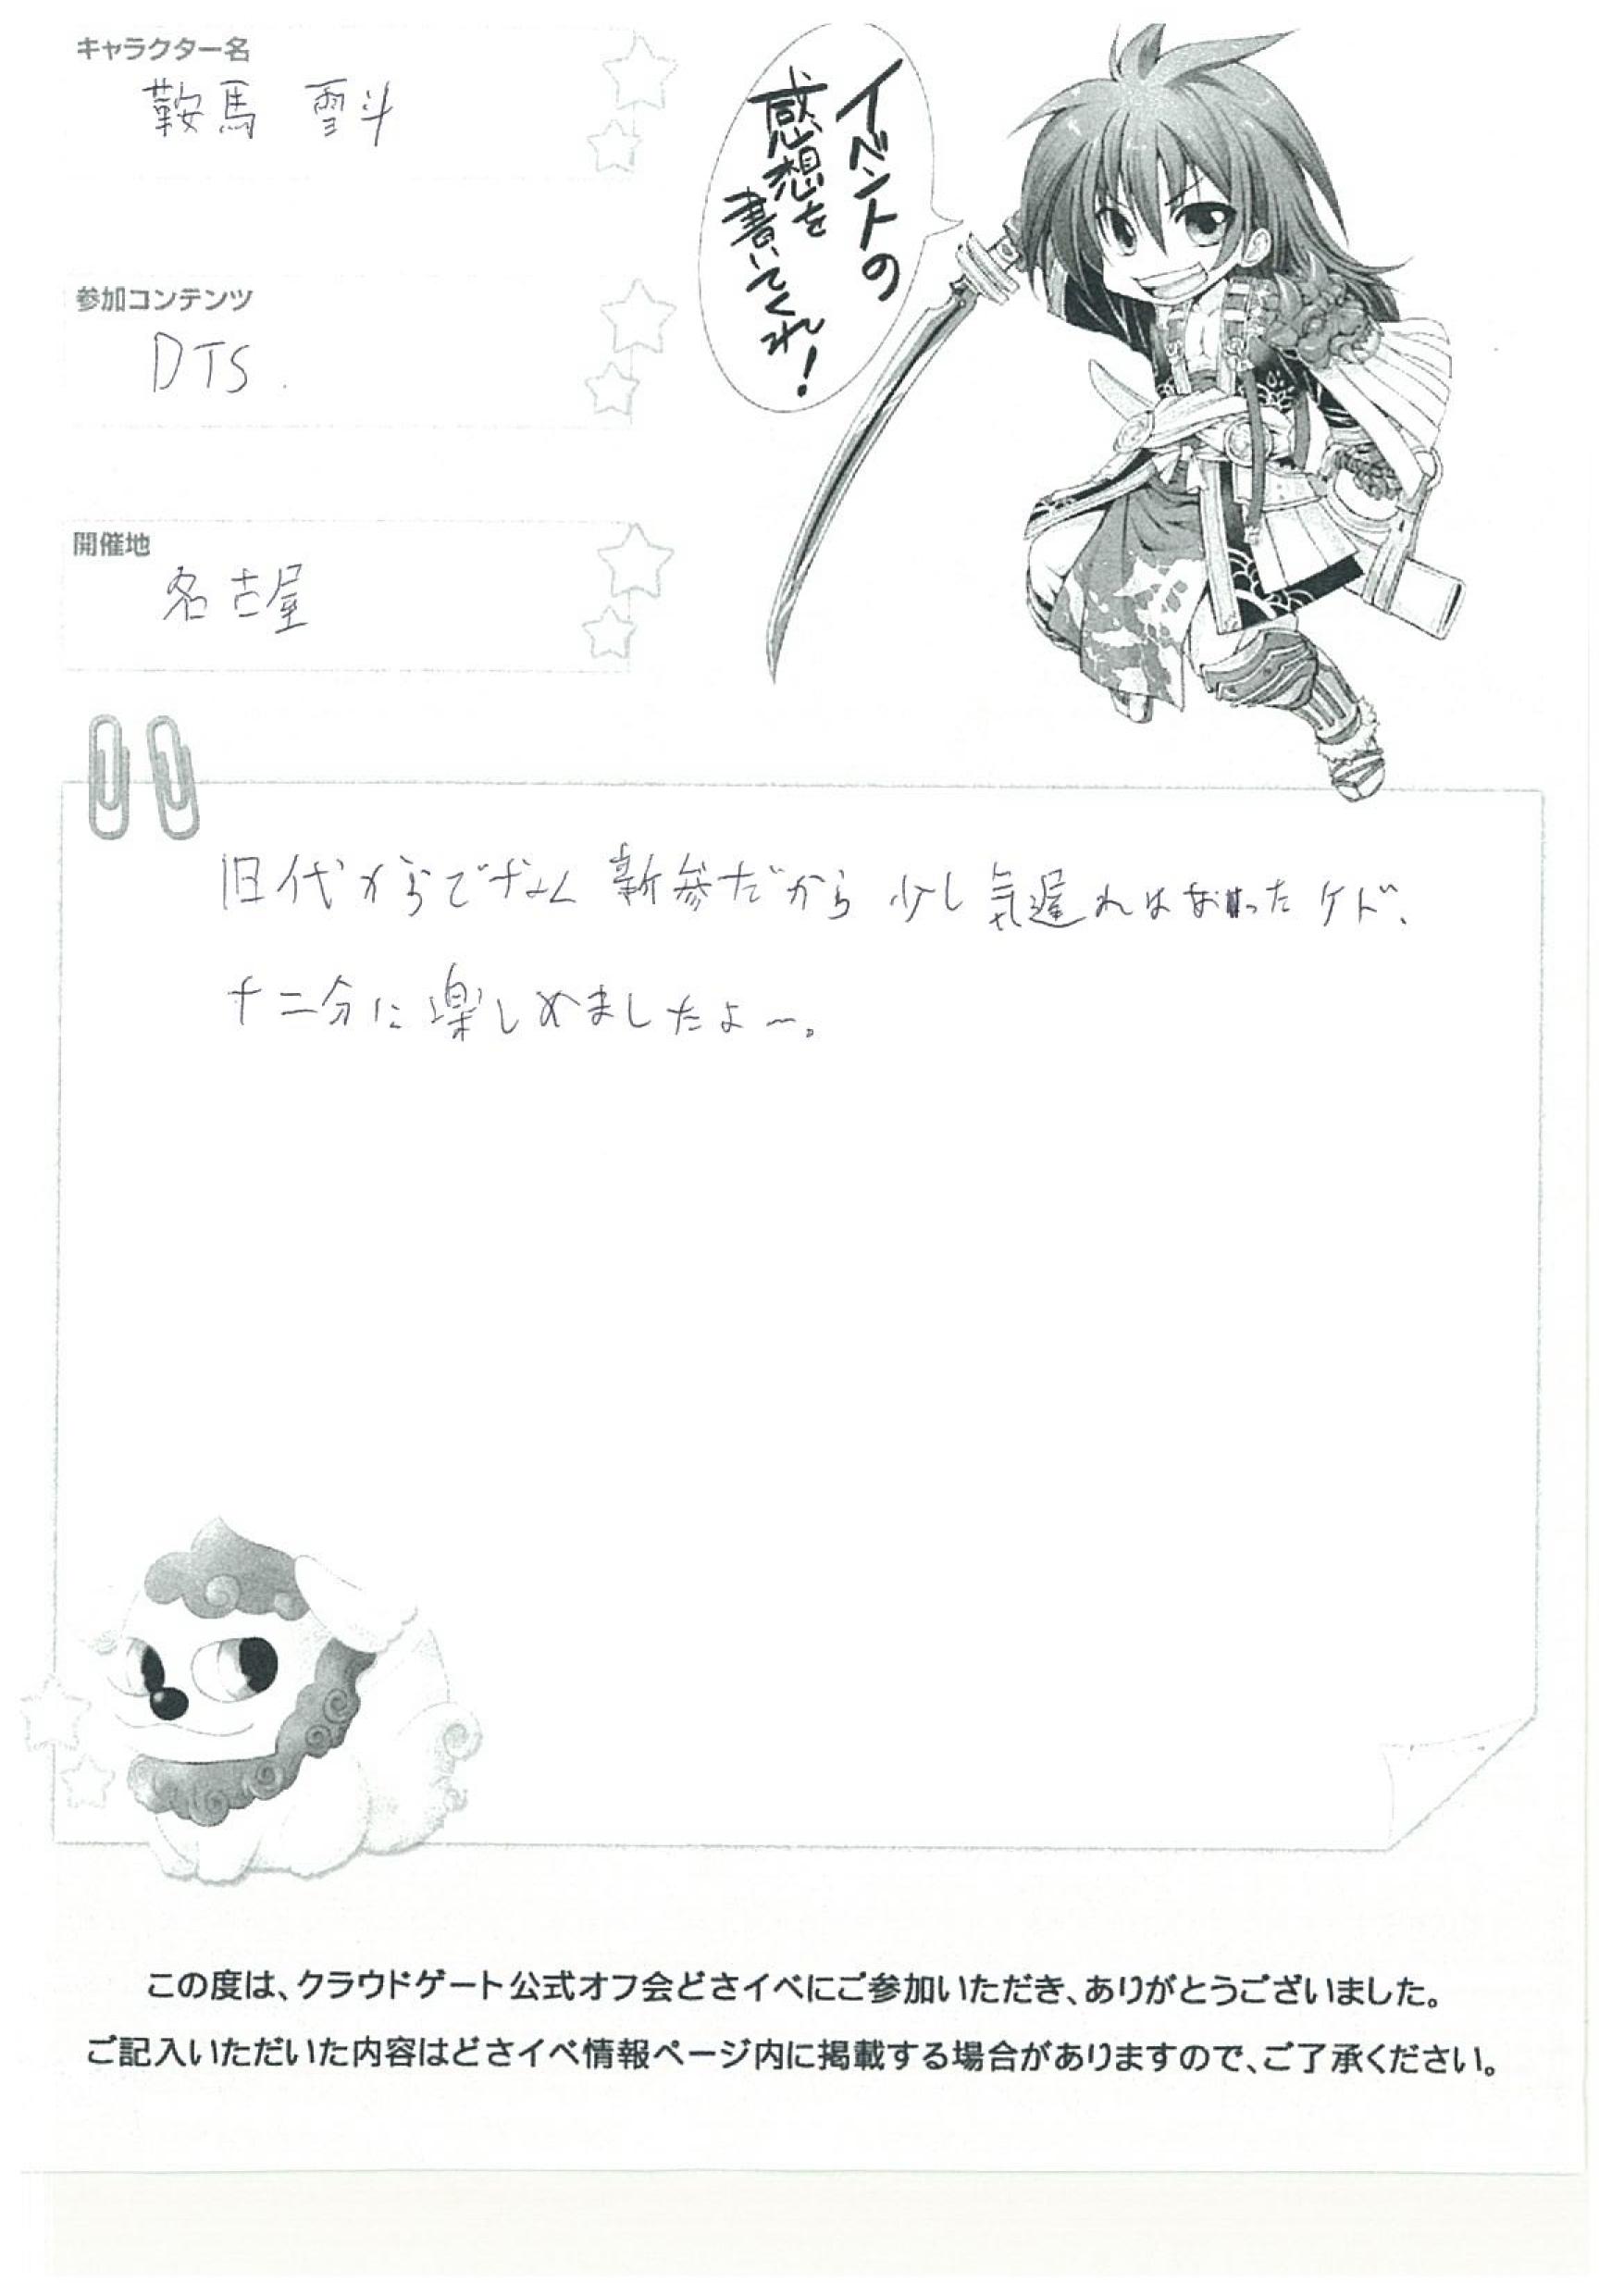 キャラクター名
鞍馬 雪斗
イベントの
感想を
書いてくれ!
参加コンテンツ
DTS.
開催地
名古屋
旧代からでなく 新参だから 少し気遅れはあったケド、
十二分に楽しめましたよー。
この度は、クラウドゲート公式オフ会どさイベにご参加いただき、ありがとうございました。
ご記入いただいた内容はどさイベ情報ページ内に掲載する場合がありますので、ご了承ください。